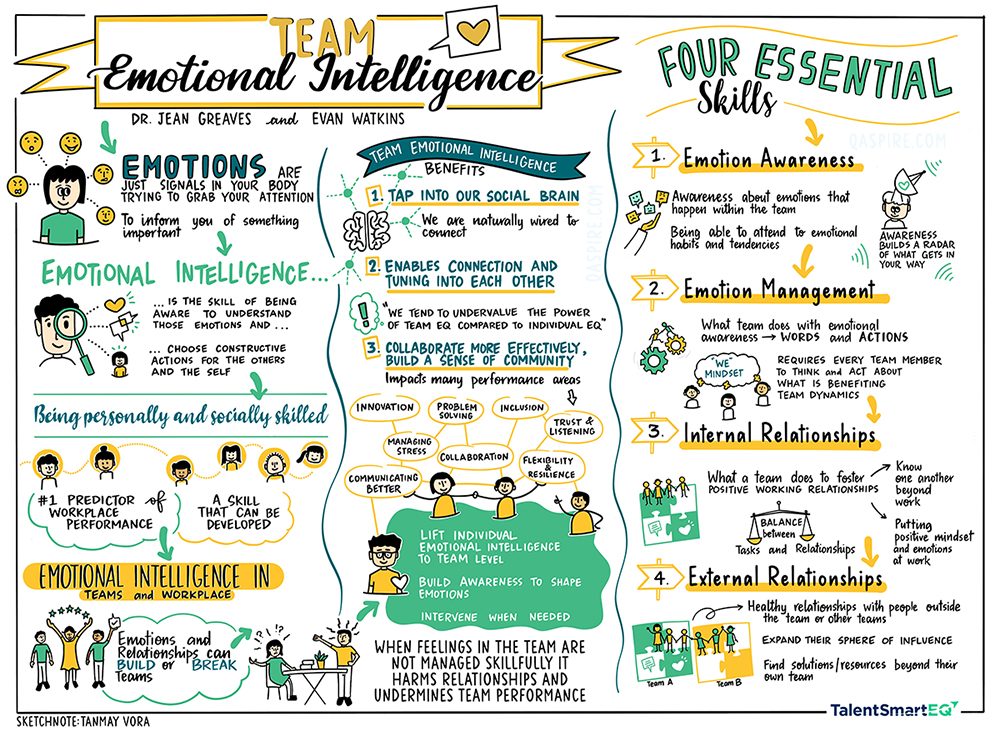 TEAM
Emotional Intelligence
DR. JEAN GREAVES and EVAN WATKINS
EMOTIONS ARE
JUST SIGNALS IN YOUR BODY
TRYING TO GRAB YOUR ATTENTION
To inform you of something
important
EMOTIONAL INTELLIGENCE...
... IS THE SKILL OF BEING
AWARE TO UNDERSTAND
THOSE EMOTIONS AND ...
... CHOOSE CONSTRUCTIVE
ACTIONS FOR THE OTHERS
AND THE SELF
Being personally and socially skilled
#1 PREDICTOR of
WORKPLACE
PERFORMANCE
A SKILL
THAT CAN BE
DEVELOPED
EMOTIONAL INTELLIGENCE IN
TEAMS and WORKPLACE
Emotions and
Relationships can
BUILD or BREAK
Teams
!?
!?
SKETCHNOTE: TANMAY VORA
TEAM EMOTIONAL INTELLIGENCE
BENEFITS
1. TAP INTO OUR SOCIAL BRAIN
We are naturally wired to
connect
2. ENABLES CONNECTION AND
TUNING INTO EACH OTHER
!
"WE TEND TO UNDERVALUE THE POWER
OF TEAM EQ COMPARED TO INDIVIDUAL EQ"
3. COLLABORATE MORE EFFECTIVELY,
BUILD A SENSE OF COMMUNITY
Impacts many performance areas
INNOVATION
PROBLEM
SOLVING
INCLUSION
TRUST &
LISTENING
MANAGING
STRESS
COLLABORATION
FLEXIBILITY
& RESILIENCE
COMMUNICATING
BETTER
LIFT INDIVIDUAL
EMOTIONAL INTELLIGENCE
TO TEAM LEVEL
BUILD AWARENESS TO SHAPE
EMOTIONS
INTERVENE WHEN NEEDED
WHEN FEELINGS IN THE TEAM ARE
NOT MANAGED SKILLFULLY IT
HARMS RELATIONSHIPS AND
UNDERMINES TEAM PERFORMANCE
QASPIRE.COM
FOUR ESSENTIAL
Skills
QASPIRE.COM
1. Emotion Awareness
Awareness about emotions that
happen within the team
Being able to attend to emotional
habits and tendencies
AWARENESS
BUILDS A RADAR
OF WHAT GETS IN
YOUR WAY
2. Emotion Management
What team does with emotional
awareness → WORDS and ACTIONS
"WE"
MINDSET
REQUIRES EVERY TEAM MEMBER
TO THINK and ACT ABOUT
WHAT IS BENEFITING
TEAM DYNAMICS
3. Internal Relationships
What a team does to foster
POSITIVE WORKING RELATIONSHIPS
Know
one another
beyond
work
Putting
positive mindset
and emotions
at work
BALANCE
between
Tasks and Relationships
4. External Relationships
Healthy relationships with people outside
the team or other teams
EXPAND THEIR SPHERE OF INFLUENCE
Find solutions/resources beyond their
own team
Team A
Team B
TalentSmartEQ